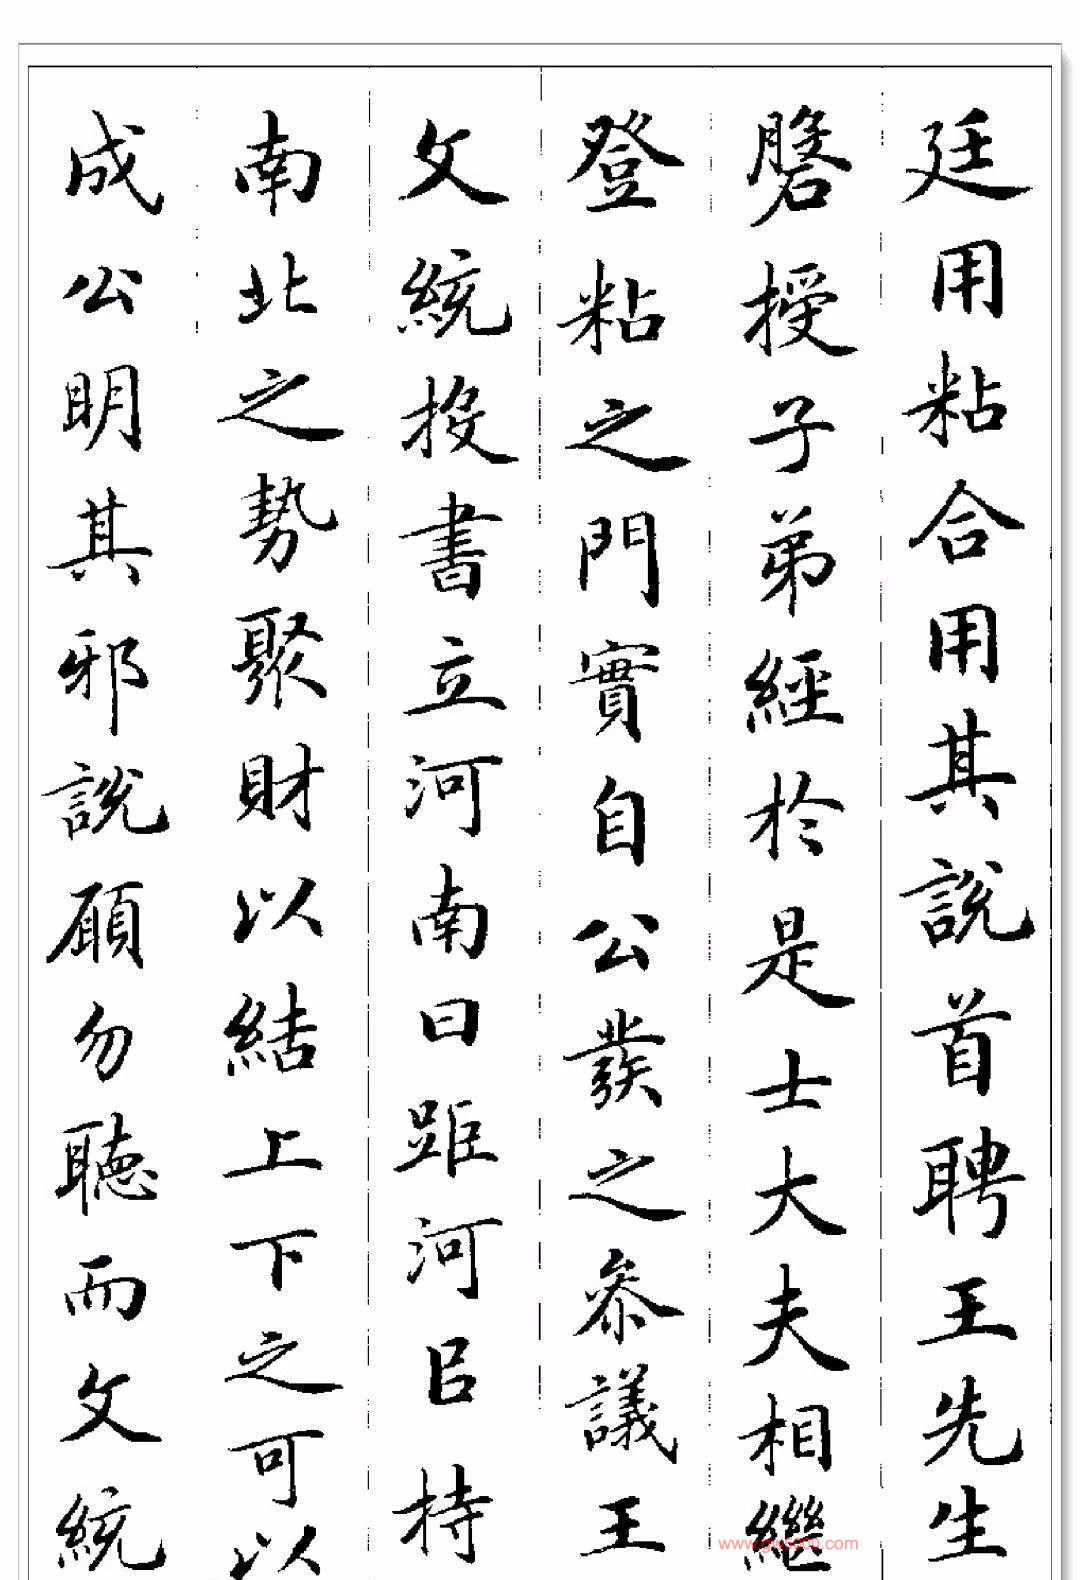 廷用粘合用其說首聘王先生
膺授子弟經於是士大夫相繼
登粘之門實自公發之參議王
文統投書立河南曰距河以持
南北之勢聚財以結上下之可以
成公明其邪說願勿聽而文統
www.gw5000.com